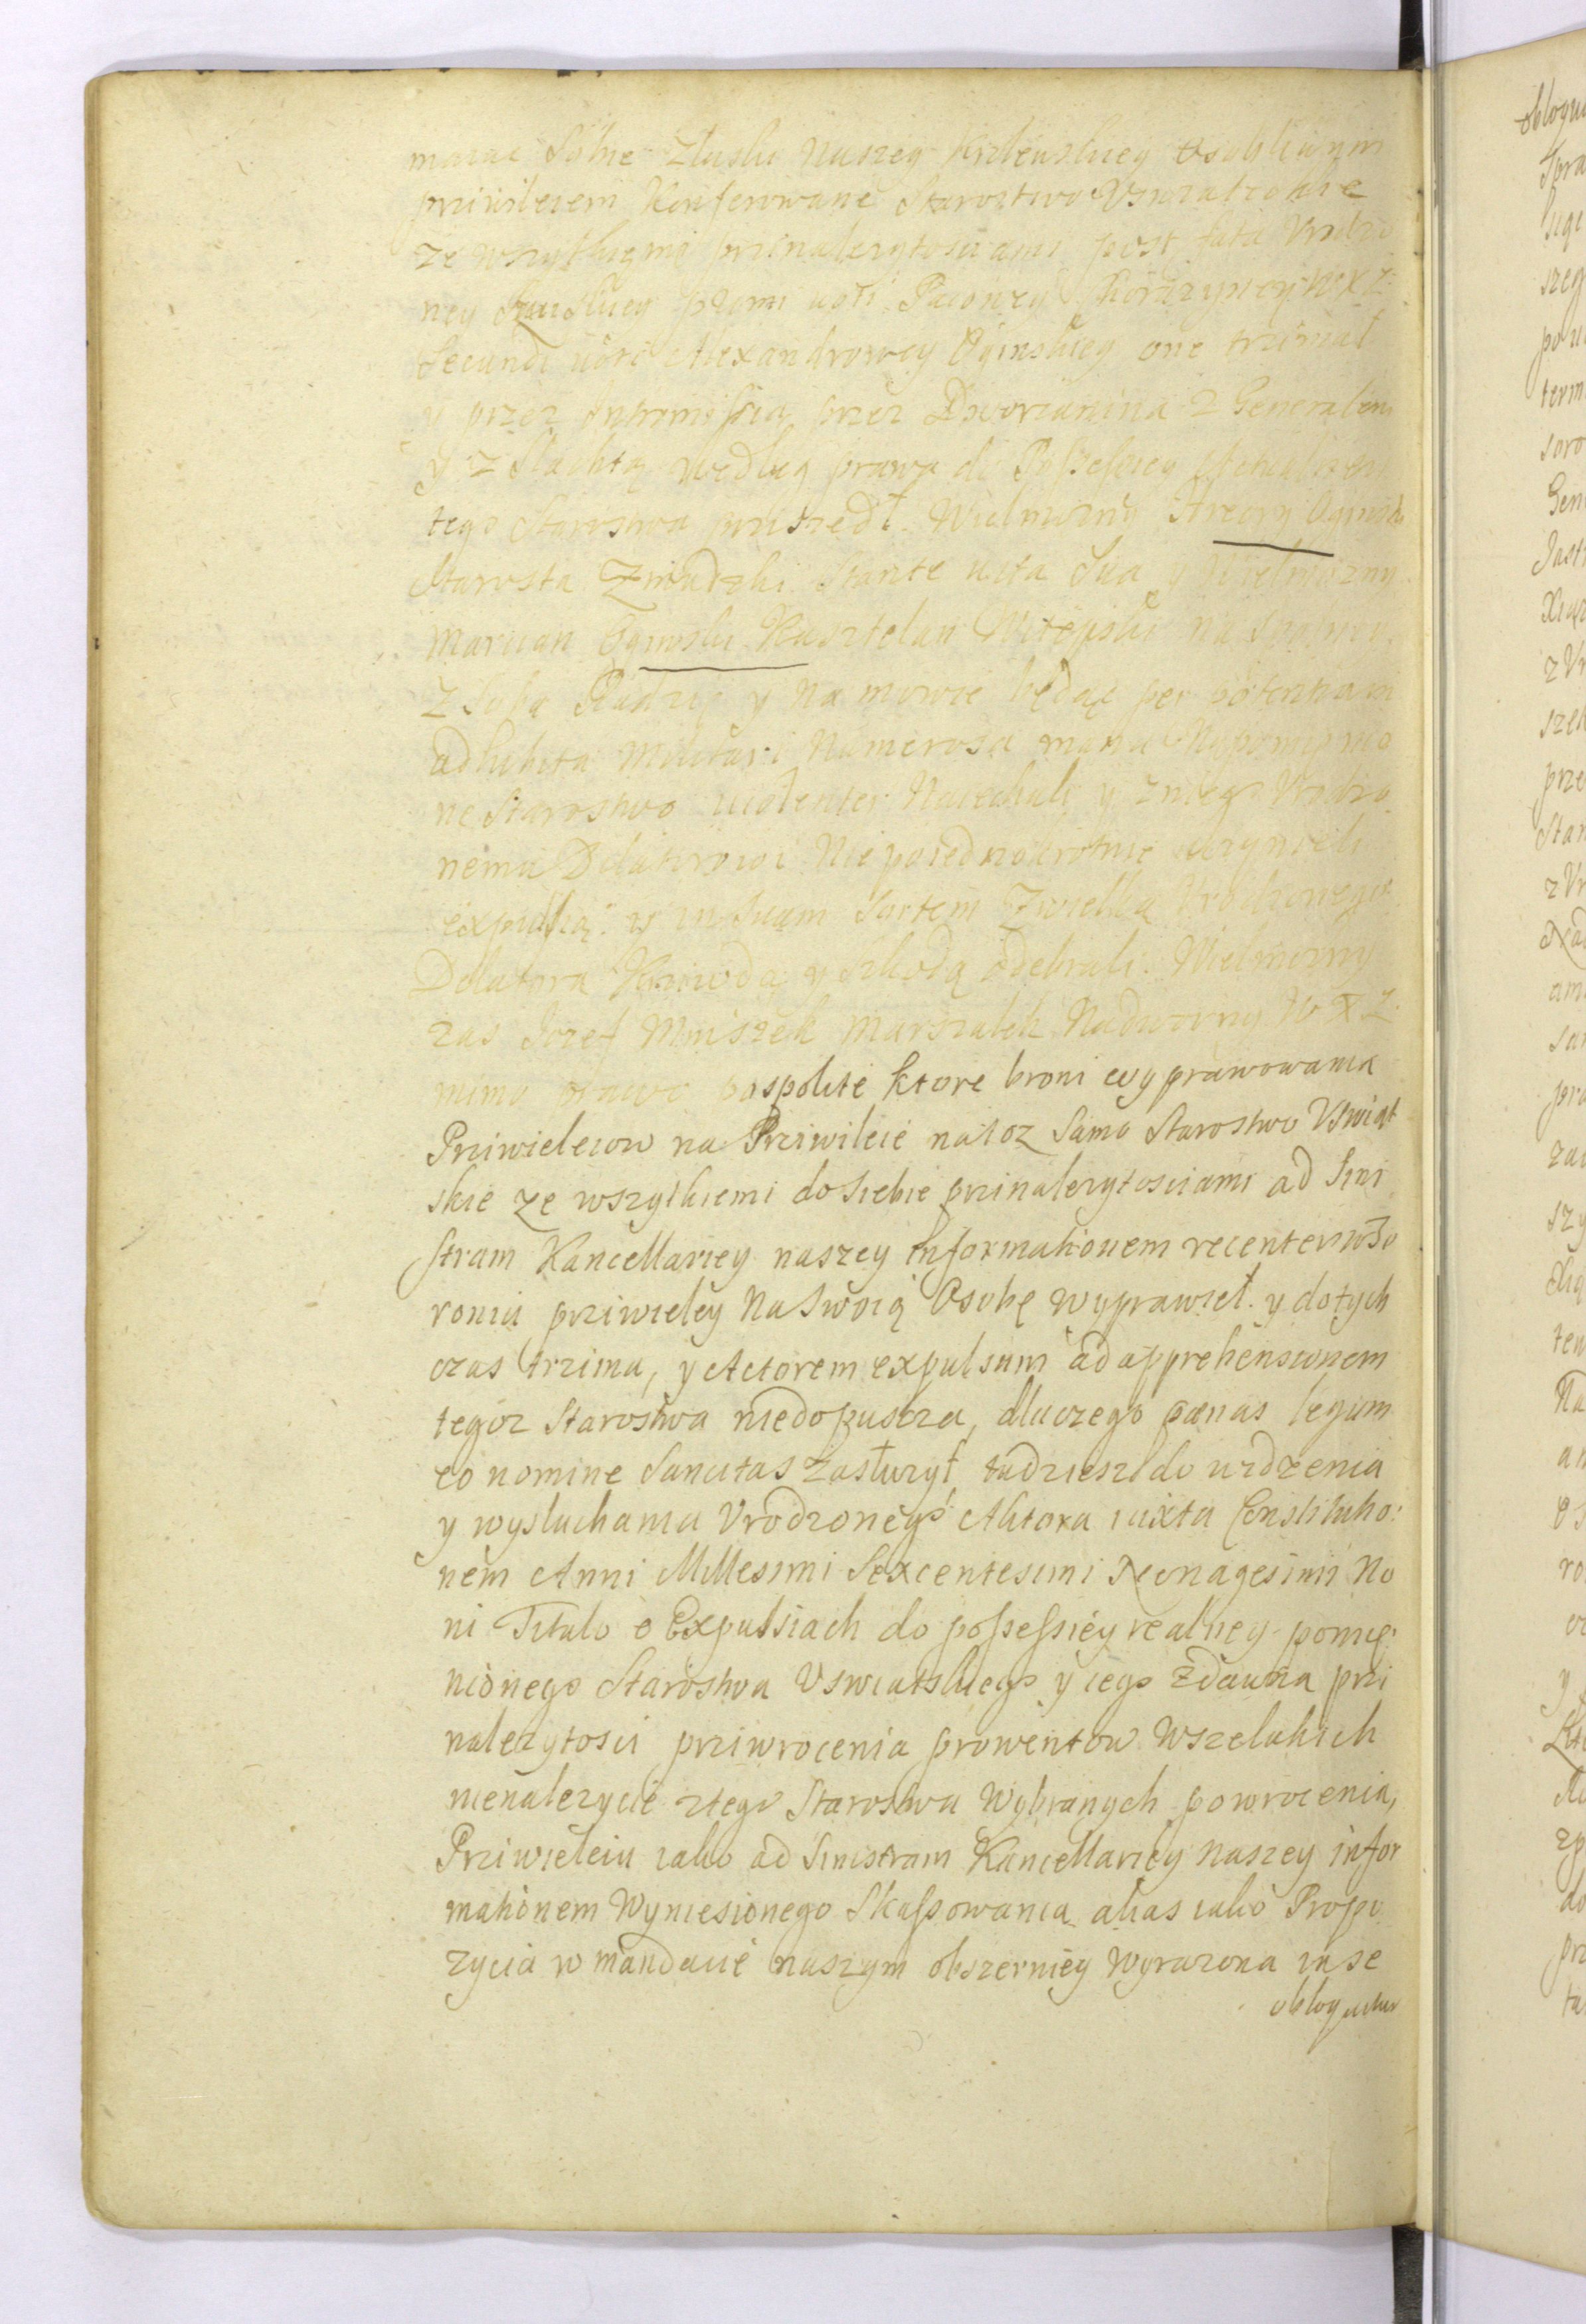 maiąc Sobie Złaski Naszey Krolewskiey osobliwym
priwileiem Konferowane Starostwo Uswiatskie
ze wszytkiemi prinalezytosciami post fata Vrodzo
ney primi voti Pacowey Chorązyney WXL
Secundi voti Alexandrowey Oginskiey one trzimał
y przez Intromissią przez Dworzanina z Generałem
y z Slachtą według prawa do Possessiey
tego Starostwa priszedł. Wielmozny Oginski
Starosta Zmudzki Stante vita Sua y Wielmozny
Marcian Oginski Kasztelan Witepski na spolney
Z Sobą Radzie y Na mowie będąc per potentiam
adhibita Militari Numerosa manu Napomienio
ne Starostwo violenter Naiechali y z niego Vrodzo
nemu Delatorowi Nie poiednokrotnie uczynieli
expulsią: y in Suam Sortem Zwielką Vrodzonego
Delatora Krziwdą y szkodą odebrali. Wielmozny
zas Jozef Mniszek Marszałek Nadworny W X L
mimo prawo pospolite ktore broni wyprawowania
Priwieleiow na Priwileie na toz Samo Starostwo Vswiat
skie ze wszytkiemi do siebie prinalezytosciami ad Sini
stram Kancellariey naszey Informationem recenter
priwieley Na Swoią Osobę wyprawieł. y dotych
czas trzima, y Actorem expulsum ad apprehensionem
tegoz Starostwa niedopuscza, dlaczego pænas legum
eo nomine Sancitas Zasłuzył, tudziesz do widzenia
y wysluchania Vrodzonego Aktora iuxta Constitutio:
nem Anni Millesimi Sexcentesimi Nonagesimi No
ni Titulo o Expulsiach do possessiey realney pomie:
nionego Starostwa Uswiatskiego y iego Zdawna pri
nalezytosci priwrocenia prowentow Wszelakich
nienalezycie ztego Starostwa Wybranych powrocenia,
Priwieleiu iako ad Sinistram Kancellariey naszey infor
mationem Wyniesionego Skassowania alias iako Propo
zycia w mandacie naszym obszerniey Wyrazona in se
obloquitur